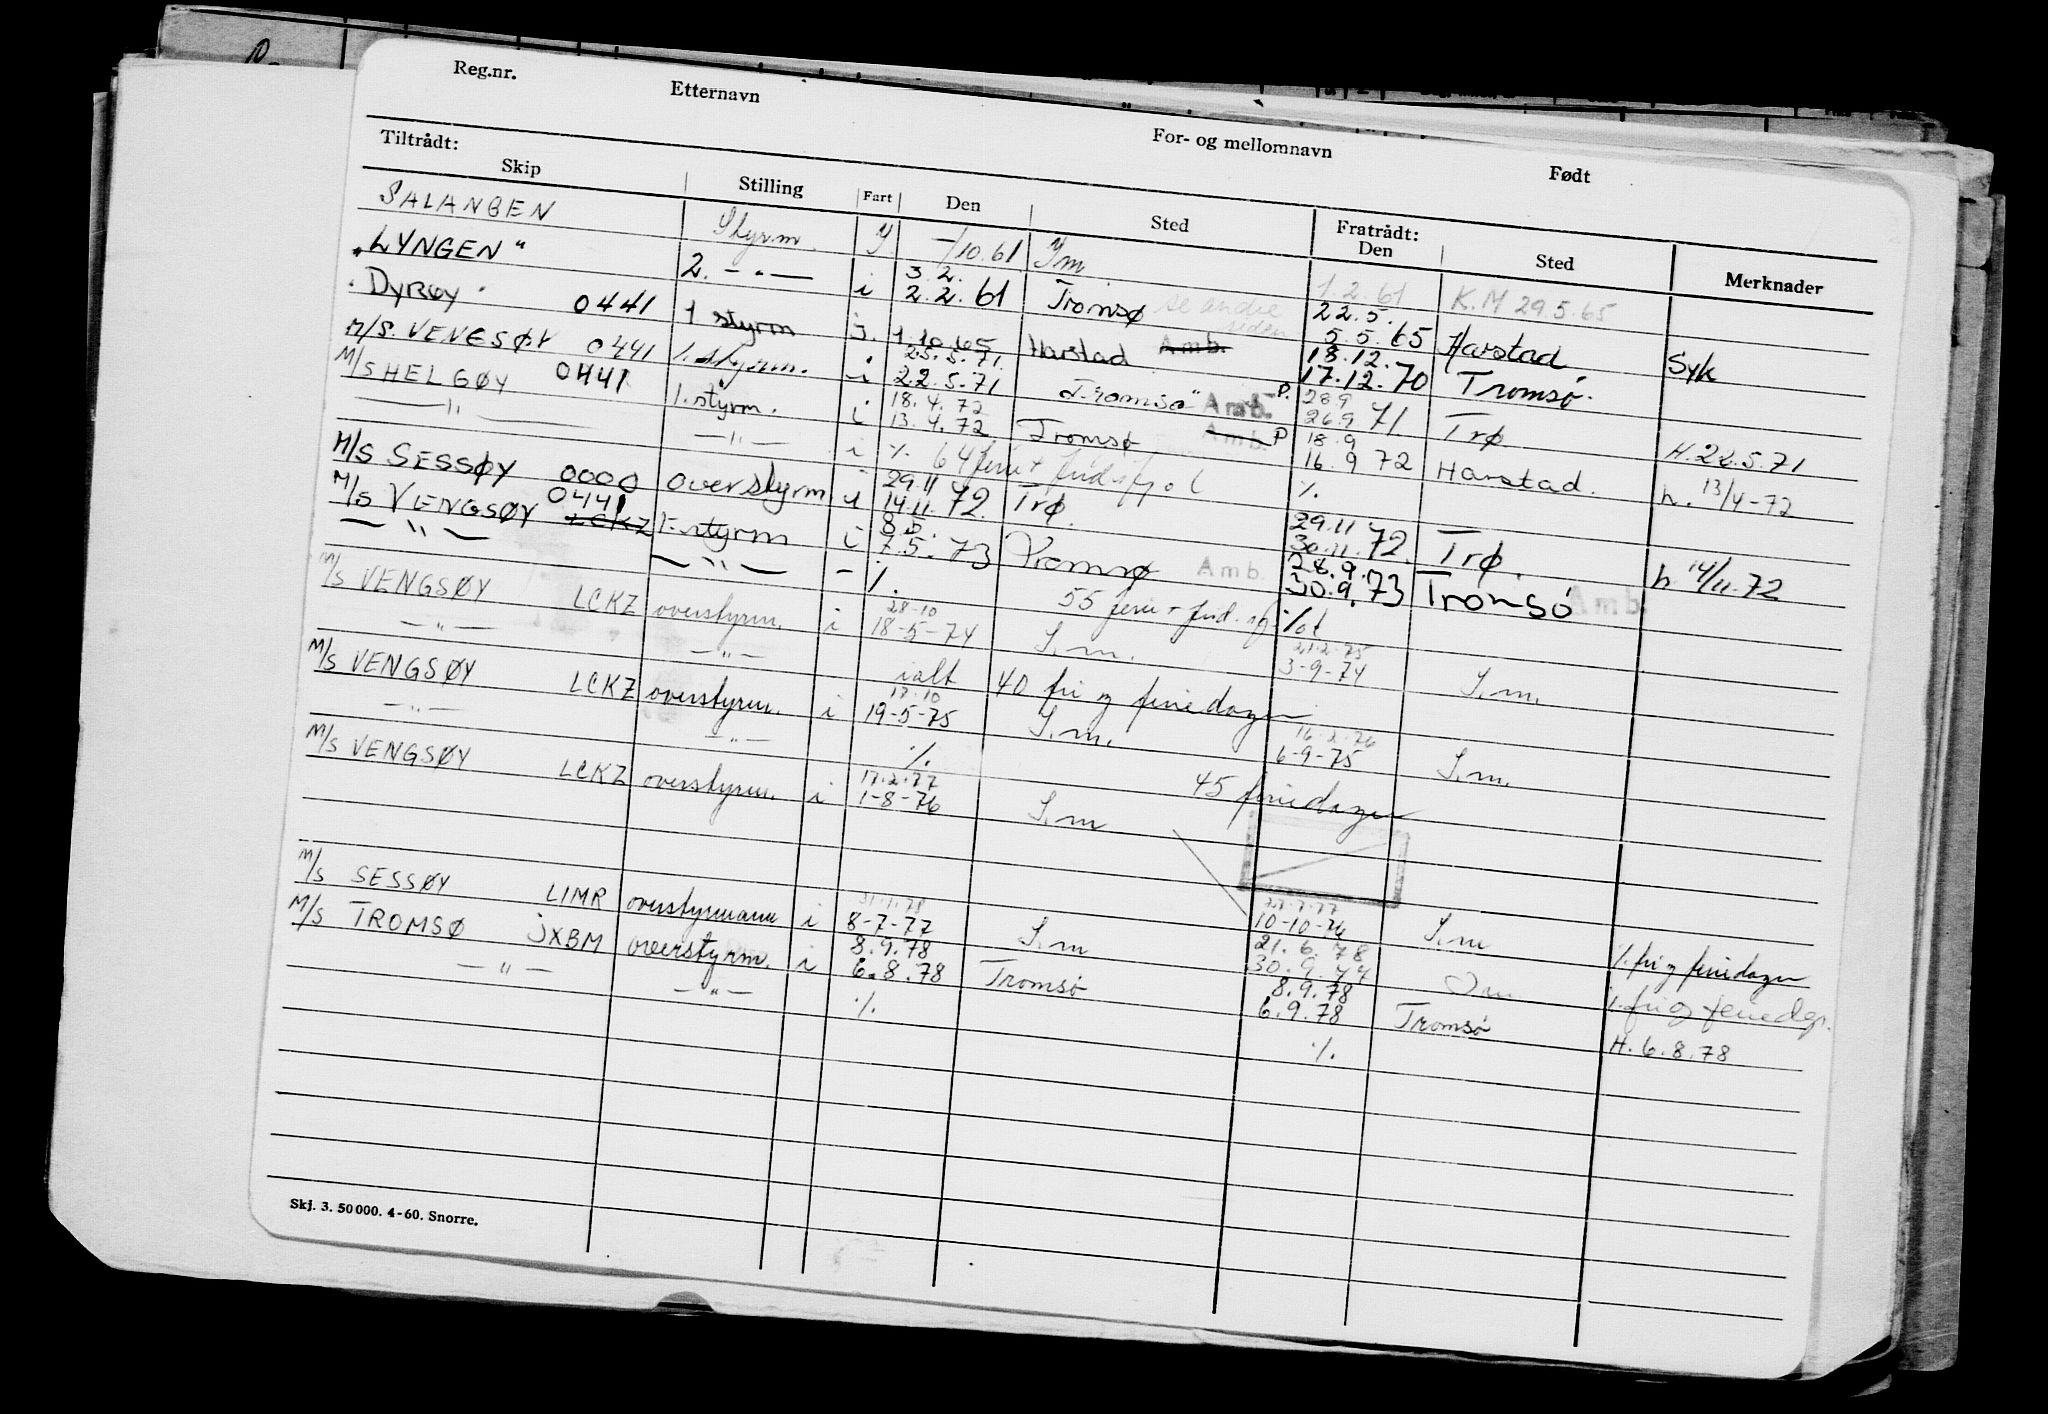 Reg.nr. Etternavn For- og mellomnavn Født
Tiltrådt: Fratrådt:
Skip Stilling Fart Den Sted Den Sted Merknader
SALANGEN Styrm. -/10.61 1.2.61 K.M 29.5.65
3.2. 22.5.
"LYNGEN" 2. -"- i 2.2.61 Tromsø se andre siden 5.5.65 Harstad Syk
18.12.
"DYRØY" 0441 1 styrm 1.10.65 Harstad Amb. 17.12.70 Tromsø.
25.5.71 28.9
M/S. VENGSØY 0441 1. styrm. i 22.5.71 "Tromsø" Amb. P. 26.9 71 Trø H. 22.5.71
18.4.72 18.9
M/S HELGØY 0441 1. styrm. i 13.4.72 Tromsø Amb. P 16.9 72 Harstad. h. 13/4-72
—"— —"— i %. 64 ferie+ %.
29.11 29.11
M/S SESSØY 0000 overstyrm i 14.11.72. Trø. 30.11.72. Trø. h 14/11.72
8.5. 28.9.
M/S VENGSØY 0441 LCKZ 1. styrm i 7.5.73 Tromsø Amb. 30.9.73 Tromsø Amb.
—"— —"— - %. 55 ferie+
28-10 21.2.75
M/S VENGSØY LCKZ overstyrm. i 18-5-74 S.m. 3-9-74 S.m.
—"— —"— ialt 40 fri og feriedager
17.10 16.2.76
M/S VENGSØY LCKZ overstyrm. i 19-5-75 S.m. 6-9-75 S.m.
—"— —"— %. 45 feriedager
17.2.77
M/S VENGSØY LCKZ overstyrm. i 1-8-76 S.m 10-10-76 S.m %. fri og feriedager
21.6.78
M/S SESSØY LIMR overstyrmann i 8-7-77 S.m 30.9.77 %. fri og feriedgr.
8.9.78 8.9.78
M/S TROMSØ JXBM overstyrm. i 6.8.78 Tromsø 6.9.78 Tromsø H. 6.8.78
—"— —"— %. %.
Skj. 3. 50000. 4-60. Snorre.